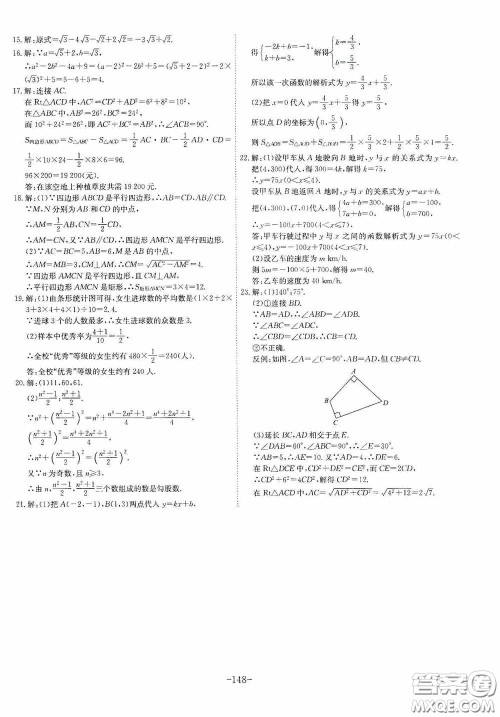 15.解:原式=√3-4√3-√2+2√2=-3√3+√2.
16.解:∵a=√5+2,b=√3,
∴a²-2b²-4a+9=(a-2)²-2b²+5=(√5+2-2)²-2×
(√3)²+5=5-6+5=4.
17.解:连接 AC.
在 Rt△ACD 中,AC²=CD²+AD²=6²+8²=10²,
在△ABC 中,AB²=26²,BC²=24²,
而 10²+24²=26²,即 AC²+BC²=AB²,∴∠ACB=90°.
S四边形ABCD=S△ABC-S△ACD=1/2 AC·BC-1/2 AD·CD=
1/2×10×24-1/2×8×6=96,
96×200=19 200(元).
答:在该空地上种植草皮共需 19 200 元.
18.解:(1)∵四边形 ABCD 是平行四边形,∴AB=CD,AB∥CD.
∵M、N 分别为 AB 和 CD 的中点,
∴AM=1/2 AB,CN=1/2 CD,
∴AM=CN,又∵AB∥CD,∴四边形 AMCN 是平行四边形.
(2)∵AC=BC=5,AB=6,M 是 AB 的中点,
∴AM=MB=3,CM⊥AM,∴CM=√(AC²-AM²)=4.
∵四边形 AMCN 是平行四边形,且 CM⊥AM,
∴平行四边形 AMCN 是矩形,∴S矩形AMCN=3×4=12.
19.解:(1)由条形统计图可得,女生进球数的平均数是(1×2+2×
3+3×4+4×1)÷10=2.4.
∵进球 3 个的人数最多,∴女生进球数的众数是 3.
(2)样本中优秀率为 4+1/10=1/2,
∴全校“优秀”等级的女生约有 480×1/2=240(人).
答:全校“优秀”等级的女生约有 240 人.
20.解:(1)11,60,61.
(2)n²-1/2;n²+1/2.
∵n²+(n²-1/2)²=n²+n⁴-2n²+1/4=n⁴+2n²+1/4,
(n²+1/2)²=n⁴+2n²+1/4,∴n²+(n²-1/2)²=(n²+1/2)².
又∵n 为奇数,且 n≥3,
∴由 n,n²-1/2,n²+1/2三个数组成的数是勾股数.
21.解:(1)把 A(-2,-1),B(1,3)两点代入 y=kx+b,
得{-2k+b=-1, k+b=3, 解得{k=4/3, b=5/3.
所以该一次函数的解析式为 y=4/3x+5/3.
(2)把 x=0 代入 y=4/3x+5/3得 y=5/3,
所以点 D 的坐标为(0,5/3),
则 S△AOB=S△AOD+S△BOD=1/2×5/3×2+1/2×5/3×1=5/2.
22.解:(1)设甲车从 A 地驶向 B 地时,y 与 x 的关系式为 y=kx.
把(4,300)代入,得 300=4k,解得 k=75.
∴y=75x(0<x≤4).
设甲车从 B 地返回 A 地时,y 与 x 的关系式为 y=ax+b.
把(4,300),(7,0)代入,得{4a+b=300, 7a+b=0. 解得{a=-100, b=700,
∴y=-100x+700(4<x≤7).
答:甲车行驶过程中 y 与 x 之间的函数解析式为 y=75x(0<
x≤4),y=-100x+700(4<x≤7).
(2)设乙车的速度为 m km/h.
则 5m=-100×5+700,解得 m=40.
答:乙车的速度为 40 km/h.
23.解:(1)140°;75°.
(2)①连接 BD.
∵AB=AD,∴∠ABD=∠ADB.
∵∠ABC=∠ADC,∴∠CBD=∠CDB,∴CB=CD.
②不正确.
反例:如图,∠A=∠C=90°,AB=AD,但 CB≠CD.
A
B
D
C
(3)延长 BC,AD 相交于点 E.
∵∠DAB=60°,∠ABC=90°,∴∠E=30°.
∵AB=5,∴AE=10.又∵AD=4,∴DE=6.
在 Rt△DCE 中,CD²+DE²=CE²,CE=2CD.
∴CD²+6²=4CD²,解得 CD²=12.
在 Rt△ACD 中,AC=√(AD²+CD²)=√(4²+12)=2√7.
-148-